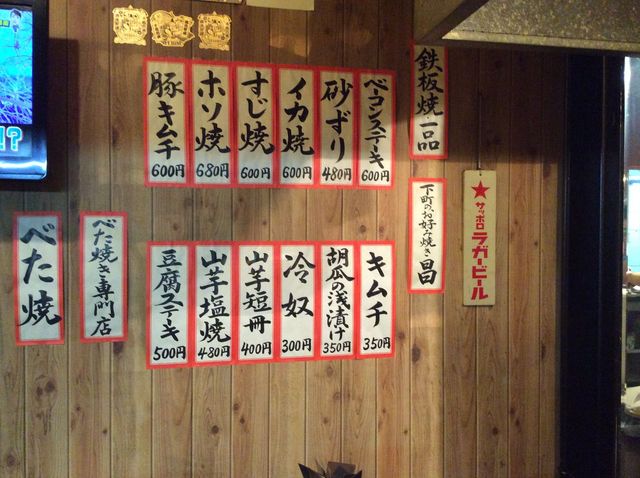 鉄板焼一品
ベーコンステーキ
600円
砂ずり
480円
イカ焼
600円
すじ焼
600円
ホソ焼
680円
豚キムチ
600円
下町のお好み焼き 昌
キムチ
350円
胡瓜の浅漬け
350円
冷奴
300円
山芋短冊
400円
山芋塩焼
480円
豆腐ステーキ
500円
べた焼き専門店
べた焼
★サッポロ
ラガービール
!?